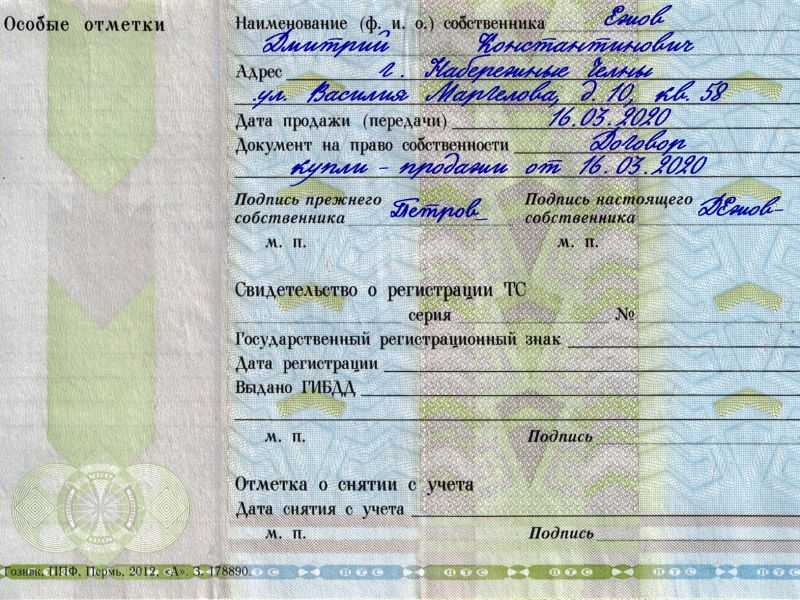 Особые отметки
Наименование (ф. и. о.) собственника Ежов
Дмитрий Константинович
Адрес г. Набережные Челны
ул. Василия Маргелова, д. 10, кв. 58
Дата продажи (передачи) 16.03.2020
Документ на право собственности Договор
купли - продажи от 16.03.2020
Подпись прежнего
собственника Петров
Подпись настоящего
собственника ДЕжов
м. п. м. п.
Свидетельство о регистрации ТС
серия №
Государственный регистрационный знак
Дата регистрации
Выдано ГИБДД
м. п. Подпись
Отметка о снятии с учета
Дата снятия с учета
м. п. Подпись
Гознак, ППФ, Пермь, 2012, «А». З. 178890.